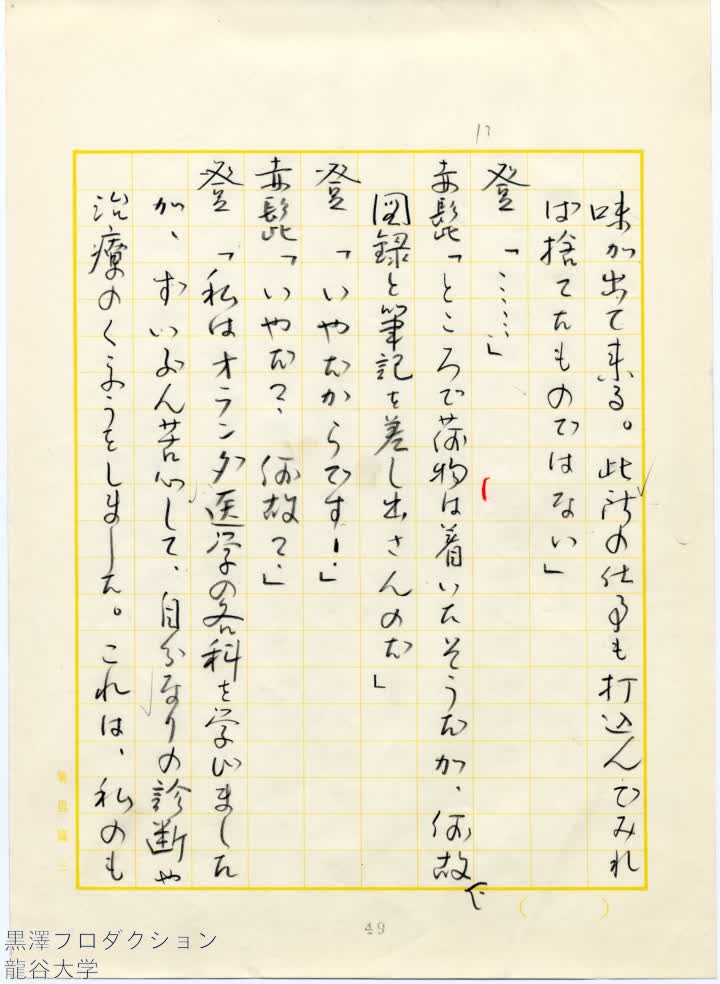 味が出て来る。此所の仕事も打込んでみれ
ば捨てたものではない」
登 「……」
赤髭「ところで荷物は着いたそうだが、何故
図録と筆記を差し出さんのだ」
登 「いやだからです！」
赤髭「いやだ？ 何故？」
登 「私はオランダ医学の各科を学びました
が、ずいぶん苦心して、自分なりの診断や
治療のくふうをしました。これは、私のも
で
49
黒澤プロダクション
龍谷大学